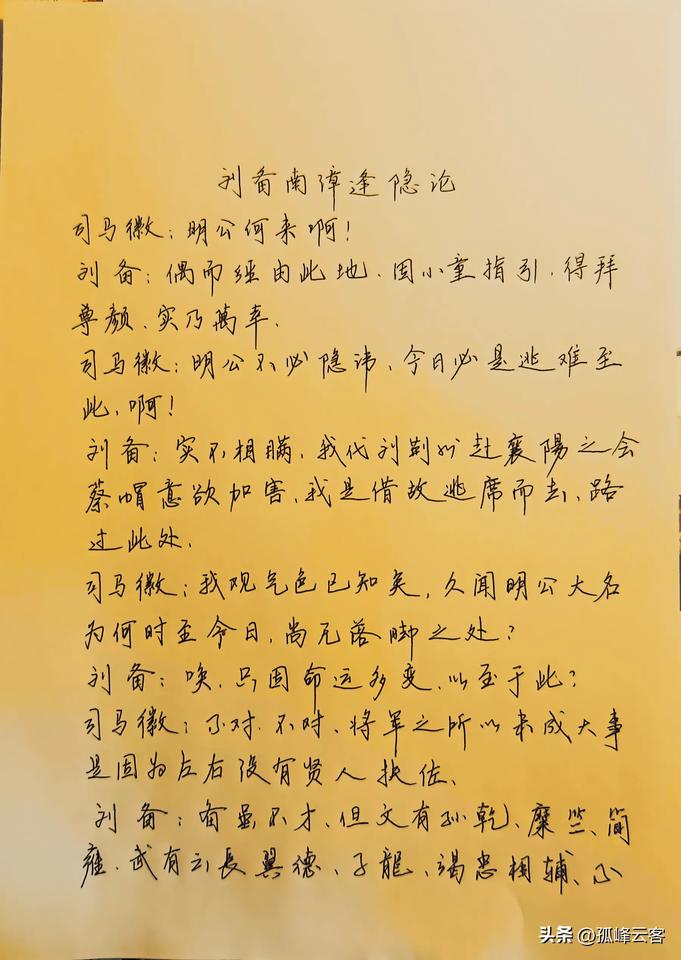 刘备南漳逢隐论
司马徽：明公何来啊！
刘备：偶而经由此地、因小童指引、得拜
尊颜、实乃萬幸、
司马徽：明公不必隐讳、今日必是逃难至
此、啊！
刘备：实不相瞒、我代刘荆州赴襄陽之会
蔡帽意欲加害、我是借故逃席而去、路
过此处、
司马徽：我观气色已知矣、久闻明公大名
为何时至今日、尚无落脚之处？
刘备：唉、只因命运多变、以至于此？
司马徽：不对、不对、将军之所以未成大事
是因为左右没有贤人扶佐、
刘备：备虽不才、但文有孙乾、糜竺、简
雍、武有云長翼德、子龍、竭忠相辅、怎
头条 @孤峰云客